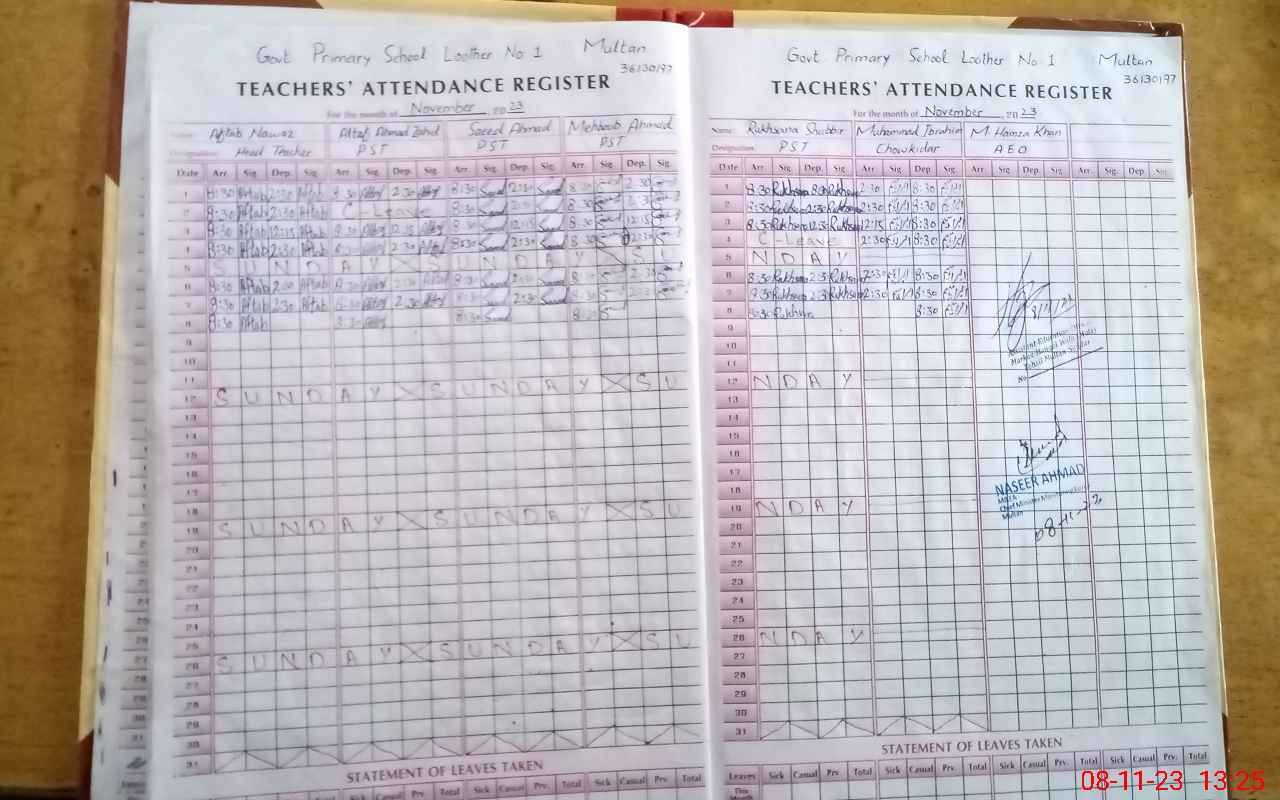 Govt Primary School Loother No 1 Multan
36130197
TEACHERS' ATTENDANCE REGISTER
For the month of November 2023
Name: Aftab Nawaz Altaf Ahmad Zahid Saeed Ahmad Mehboob Ahmad
Designation Head Teacher PST PST PST
Date Arr. Sig. Dep. Sig. Arr. Sig. Dep. Sig. Arr. Sig. Dep. Sig. Arr. Sig. Dep. Sig.
1 8:30 Aftab 2:30 Aftab 8:30 2:30 8:30 Saeed 2:30 Saeed 8:30 2:30
2 8:30 Aftab 2:30 Aftab C-Leave 8:30 Saeed 2:30 Saeed 8:30 2:30
3 8:30 Aftab 12:15 Aftab 8:30 12:15 8:30 Saeed 12:15 Saeed 8:30 12:15
4 8:30 Aftab 2:30 Aftab 8:30 2:30 8:30 Saeed 2:30 Saeed 8:30 2:30
5 S U N D A Y X S U N D A Y X S U
6 8:30 Aftab Aftab 8:30 2:30 8:30 Saeed 2:30 Saeed 8:30 2:30
7 8:30 Aftab 2:30 Aftab 8:30 2:30 8:30 Saeed 2:30 Saeed 8:30 2:30
8 8:30 Aftab 8:30 8:30 Saeed 8:30
9
10
11
12 S U N D A Y X S U N D A Y X S U
13
14
15
16
17
18
19 S U N D A Y X S U N D A Y X S U
20
21
22
23
24
25
26 S U N D A Y X S U N D A Y X S U
27
28
29
30
31
STATEMENT OF LEAVES TAKEN
Sick Casual Prv. Total Sick Casual Prv. Total Sick Casual Prv. Total
Govt Primary School Loother No 1 Multan
36130197
TEACHERS' ATTENDANCE REGISTER
For the month of November 2023
Name: Rukhsana Shabbir Muhammad Ibrahim M Hamza Khan
Designation PST Chowkidar AEO
Date Arr. Sig. Dep. Sig. Arr. Sig. Dep. Sig. Arr. Sig. Dep. Sig. Arr. Sig. Dep. Sig.
1 8:30 Rukhsana Rukhsana 2:30 8:30
2 8:30 Rukhsana 2:30 Rukhsana 2:30 8:30
3 8:30 Rukhsana 12:30 Rukhsana 12:15 8:30
4 C-Leave 2:30 8:30
5 N D A Y
6 8:30 Rukhsana 2:30 Rukhsana 2:30 8:30
7 8:30 Rukhsana 2:30 Rukhsana 2:30 8:30
8 8:30 Rukhsana 8:30
9
10
11
12 N D A Y
13
14
15
16
17
18
19 N D A Y
20
21
22
23
24
25
26 N D A Y
27
28
29
30
31
8/11/23
Assistant Education Officer
Tehsil Multan Saddar
NASEER AHMAD
MEA
Multan
08-11-23
STATEMENT OF LEAVES TAKEN
Leaves Sick Casual Prv. Total Sick Casual Prv. Total Sick Casual Prv. Total Sick Casual Prv. Total
This
08-11-23 13:25